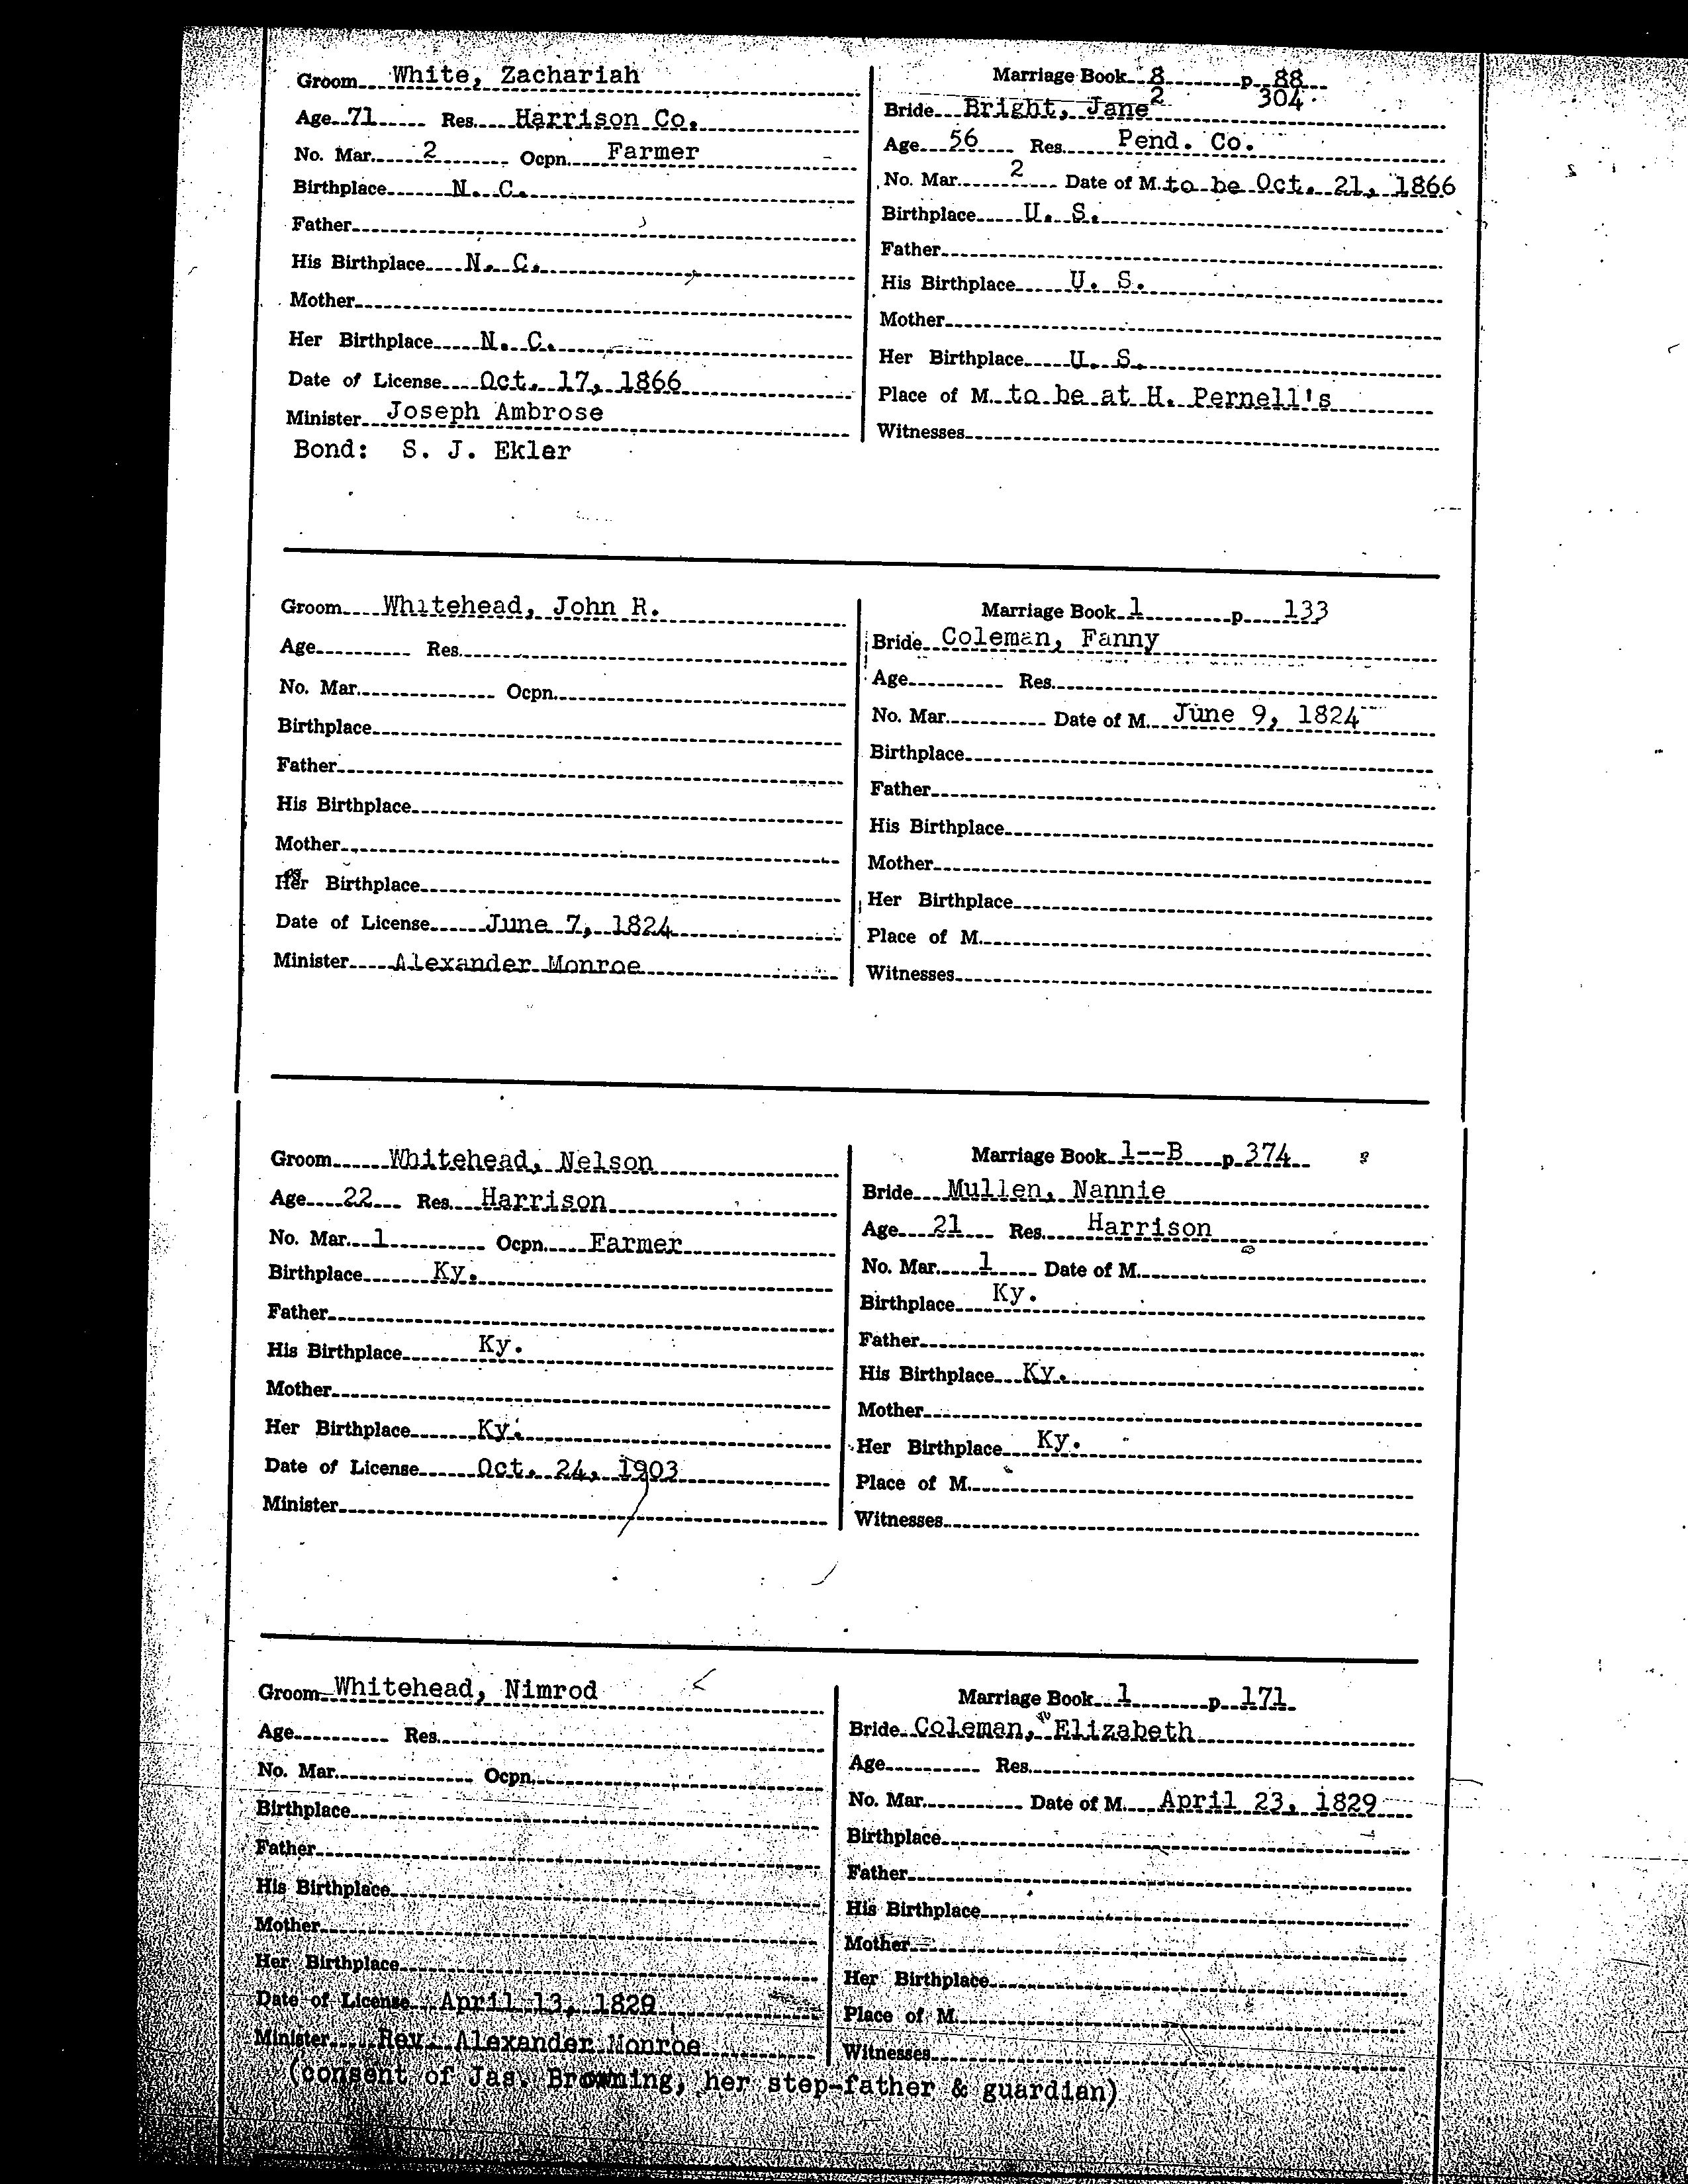 Groom White, Zachariah
Age 71 Res. Harrison Co.
No. Mar. 2 Ocpn. Farmer
Birthplace N. C.
Father
His Birthplace N. C.
Mother
Her Birthplace N. C.
Date of License Oct. 17, 1866
Minister Joseph Ambrose
Bond: S. J. Ekler
Marriage Book 8 p 88
2 304
Bride Bright, Jane
Age 56 Res. Pend. Co.
No. Mar. 2 Date of M. to be Oct. 21, 1866
Birthplace U. S.
Father
His Birthplace U. S.
Mother
Her Birthplace U. S.
Place of M. to be at H. Pernell's
Witnesses
Groom Whitehead, John R.
Age Res.
No. Mar. Ocpn.
Birthplace
Father
His Birthplace
Mother
Her Birthplace
Date of License June 7, 1824
Minister Alexander Monroe
Marriage Book 1 p 133
Bride Coleman, Fanny
Age Res.
No. Mar. Date of M. June 9, 1824
Birthplace
Father
His Birthplace
Mother
Her Birthplace
Place of M.
Witnesses
Groom Whitehead, Nelson
Age 22 Res. Harrison
No. Mar. 1 Ocpn. Farmer
Birthplace Ky.
Father
His Birthplace Ky.
Mother
Her Birthplace Ky.
Date of License Oct. 24, 1903
Minister
Marriage Book 1--B p 374
Bride Mullen, Nannie
Age 21 Res. Harrison
No. Mar. 1 Date of M.
Birthplace Ky.
Father
His Birthplace Ky.
Mother
Her Birthplace Ky.
Place of M.
Witnesses
Groom Whitehead, Nimrod
Age Res.
No. Mar. Ocpn.
Birthplace
Father
His Birthplace
Mother
Her Birthplace
Date of License April 13, 1829
Minister Rev. Alexander Monroe
Marriage Book 1 p 171
Bride Coleman, Elizabeth
Age Res.
No. Mar. Date of M. April 23, 1829
Birthplace
Father
His Birthplace
Mother
Her Birthplace
Place of M.
Witnesses
(consent of Jas. Browning, her step-father & guardian)